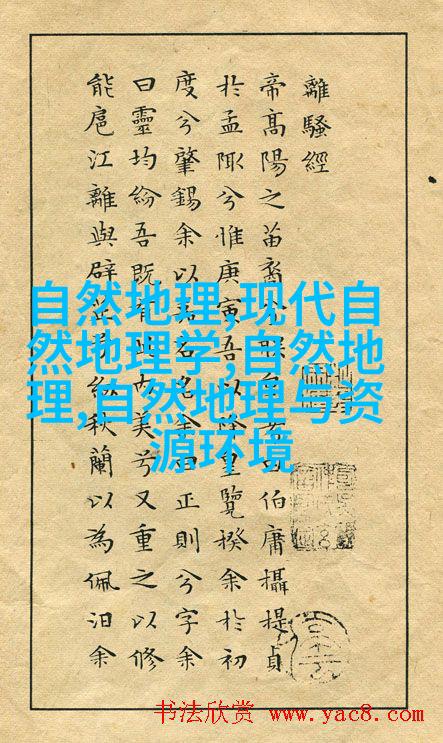 離騷經
帝高陽之苗裔兮朕伯庸攝提貞
於孟陬兮惟庚寅吾以降皇覽揆余於初
度兮肇錫余以嘉名余曰正則兮字余
曰靈均紛吾既有此內美兮又重之以修
能扈江離與辟芷兮紉秋蘭以為佩汩余
自然地理,现代自
然地理学,自然地
理,自然地理与资
源环境
书法欣赏 www.yac8.com